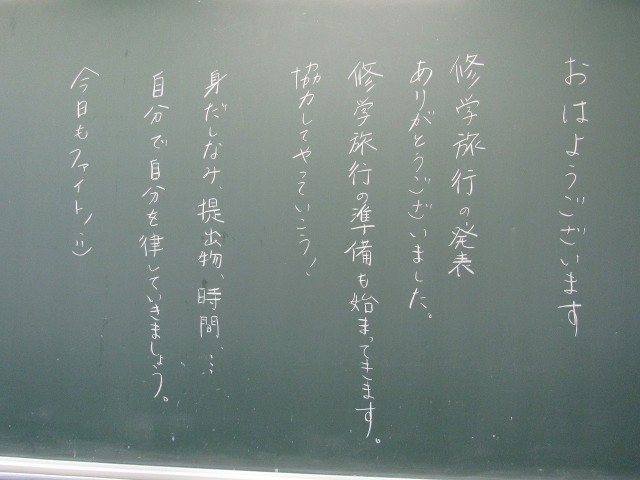 おはようございます
修学旅行の発表
ありがとうございました。
修学旅行の準備も始まってきます。
協力してやっていこう!
身だしなみ、提出物、時間…
自分で自分を律していきましょう。
今日もファイト! :)